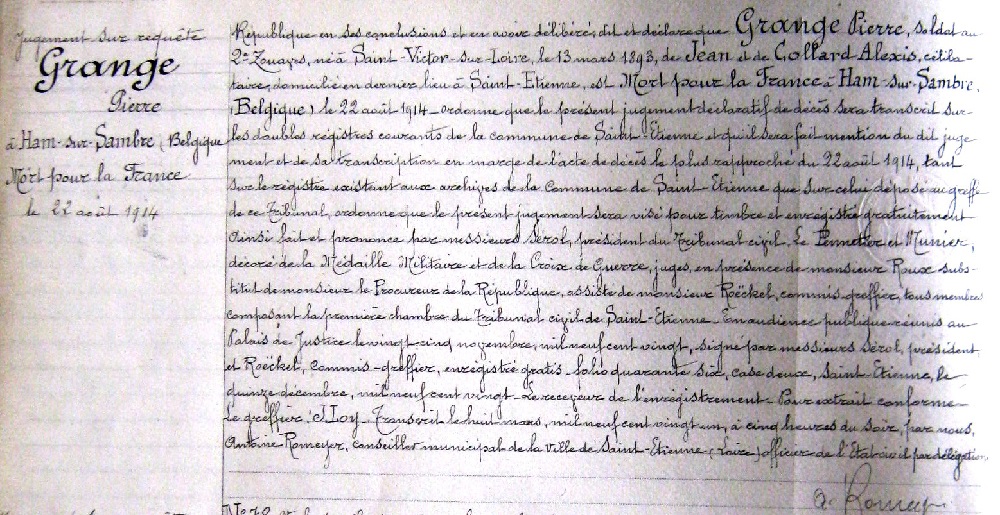 Jugement sur requête
Grange
Pierre
à Ham-sur-Sambre (Belgique
Mort pour la France
le 22 août 1914
République en ses conclusions et en avoir délibéré; dit et déclare que Grange Pierre, soldat au
2e Zouaves, né à Saint-Victor-sur-Loire, le 13 mars 1893, de Jean et de Collard Alexis, céliba-
taire, domicilié en dernier lieu à Saint-Etienne, est Mort pour la France à Ham-sur-Sambre,
(Belgique) le 22 août 1914. ordonne que le présent jugement déclaratif de décès sera transcrit sur
les doubles registres courants de la commune de Saint-Etienne et qu'il sera fait mention du dit juge
ment et de sa transcription en marge de l'acte de décès le plus rapproché du 22 août 1914, tant
sur le registre existant aux archives de la Commune de Saint-Etienne que sur celui déposé au greffe
de ce Tribunal, ordonne que le présent jugement sera visé pour timbre et enregistré gratuitement
Ainsi fait et prononcé par messieurs Sérol, président du Tribunal civil, Le Pennetier et Munier,
décoré de la Médaille Militaire et de la Croix de Guerre, juges, en présence de monsieur Roux subs-
titut de monsieur le Procureur de la République, assisté de monsieur Roëckel, commis-greffier, tous membres
composant la première chambre du Tribunal civil de Saint-Etienne. En audience publique réunis au
Palais de Justice le vingt-cinq novembre, mil neuf cent vingt, signé par messieurs Sérol, président
et Roëckel, commis-greffier, enregistré gratis folio quarante six, case douze, Saint-Etienne, le
quinze décembre, mil neuf cent vingt. Le receveur de l'enregistrement. Pour extrait conforme
Le greffier, Loy. Transcrit le huit mars, mil neuf cent vingt un, à cinq heures du soir, par nous,
Antoine Romeyer, conseiller municipal de la Ville de Saint-Etienne (Loire) officier de l'Etat civil par délégation
a. Romeyer